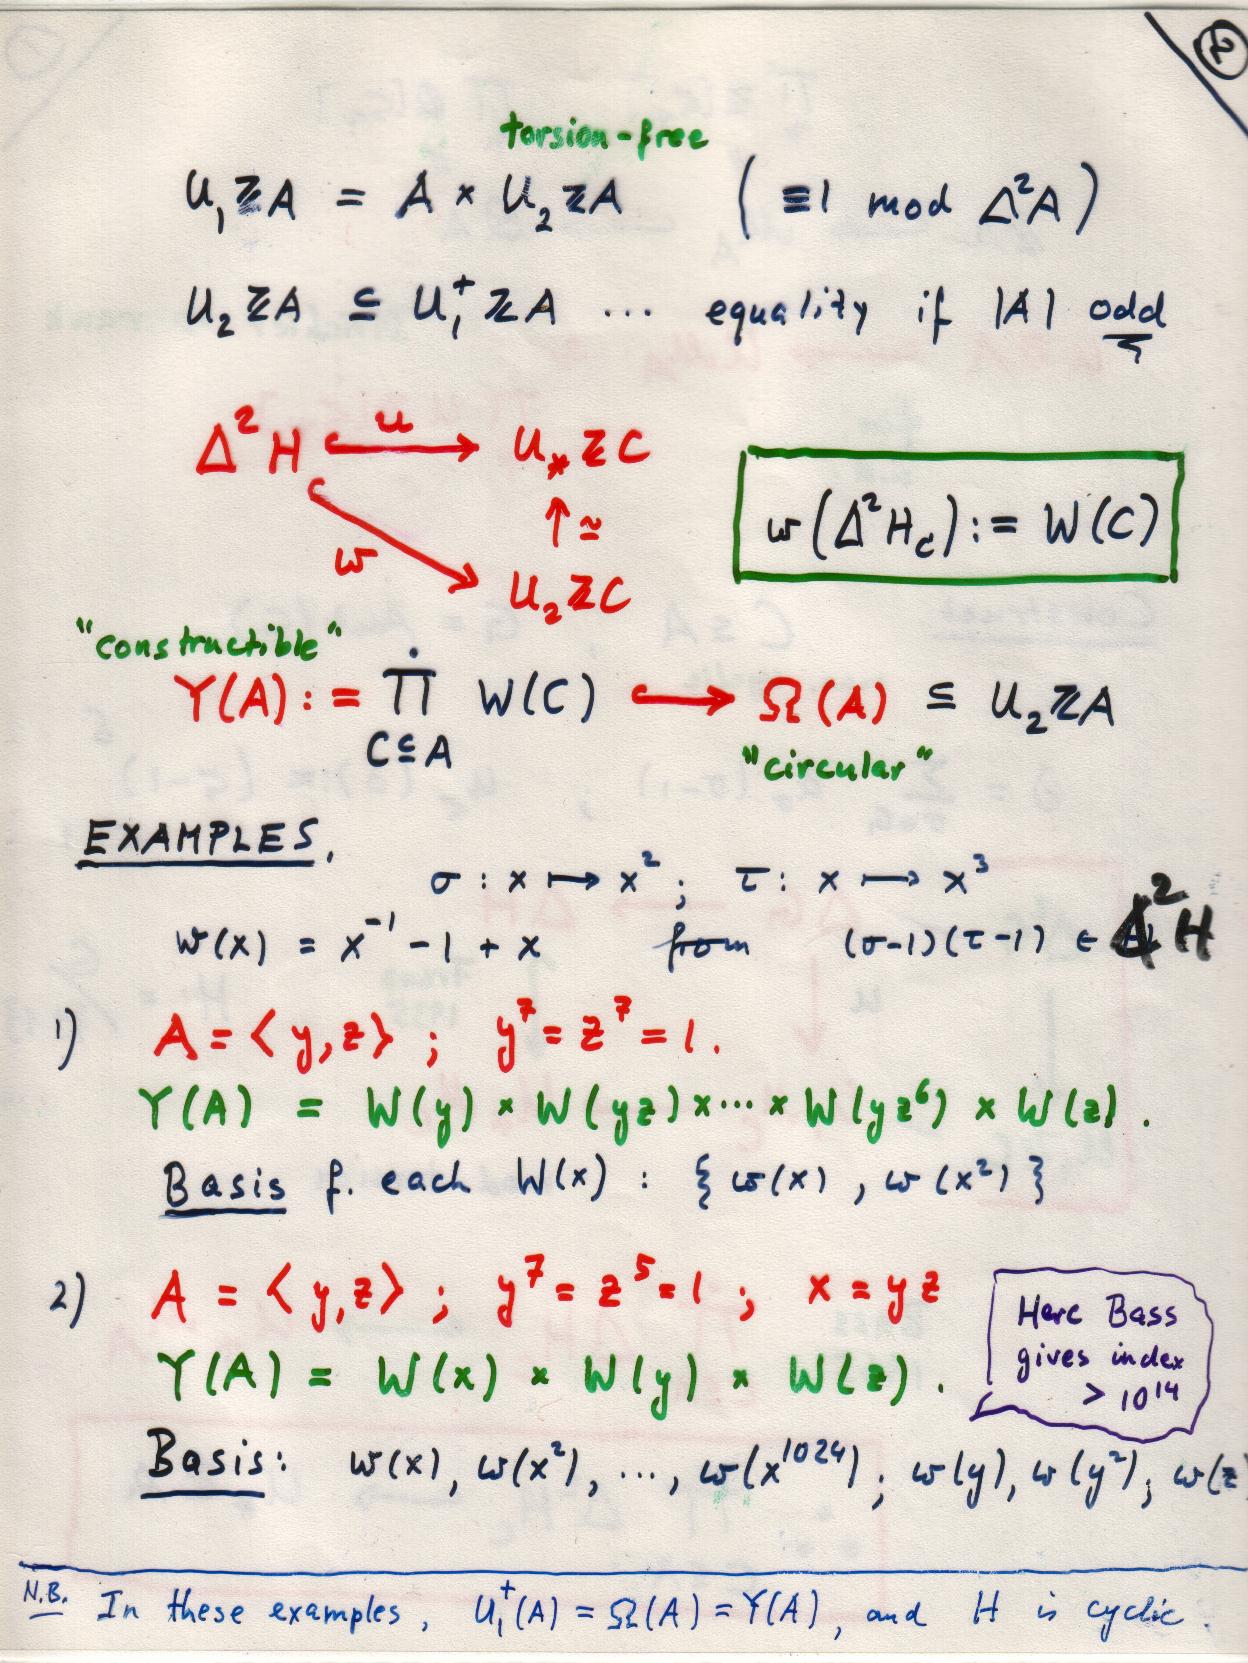 2
torsion-free
U₁ℤA = A × U₂ℤA ( ≡ 1 mod Δ²A )
U₂ℤA ⊆ U₁⁺ℤA ... equality if |A| odd
Δ²H u U⁎ℤC
w(Δ²H_C) := W(C)
↑ ≃
w U₂ℤC
"constructible"
Y(A) := ∏̇ W(C) ↪ Ω(A) ⊆ U₂ℤA
C⊆A
"circular"
EXAMPLES.
σ : x ↦ x² ; τ : x ↦ x³
w(x) = x⁻¹ - 1 + x from (σ-1)(τ-1) ∈ Δ²H
1) A = ⟨y,z⟩ ; y⁷ = z⁷ = 1.
Y(A) = W(y) × W(yz) × ... × W(yz⁶) × W(z).
Basis f. each W(x) : { w(x) , w(x²) }
2) A = ⟨y,z⟩ ; y⁷ = z⁵ = 1 ; x = yz
Here Bass
gives index
> 10¹⁴
Y(A) = W(x) × W(y) × W(z).
Basis: w(x), w(x²), ..., w(x¹⁰²⁴) ; w(y), w(y²) ; w(z)
N.B. In these examples, U₁⁺(A) = Ω(A) = Y(A), and H is cyclic.